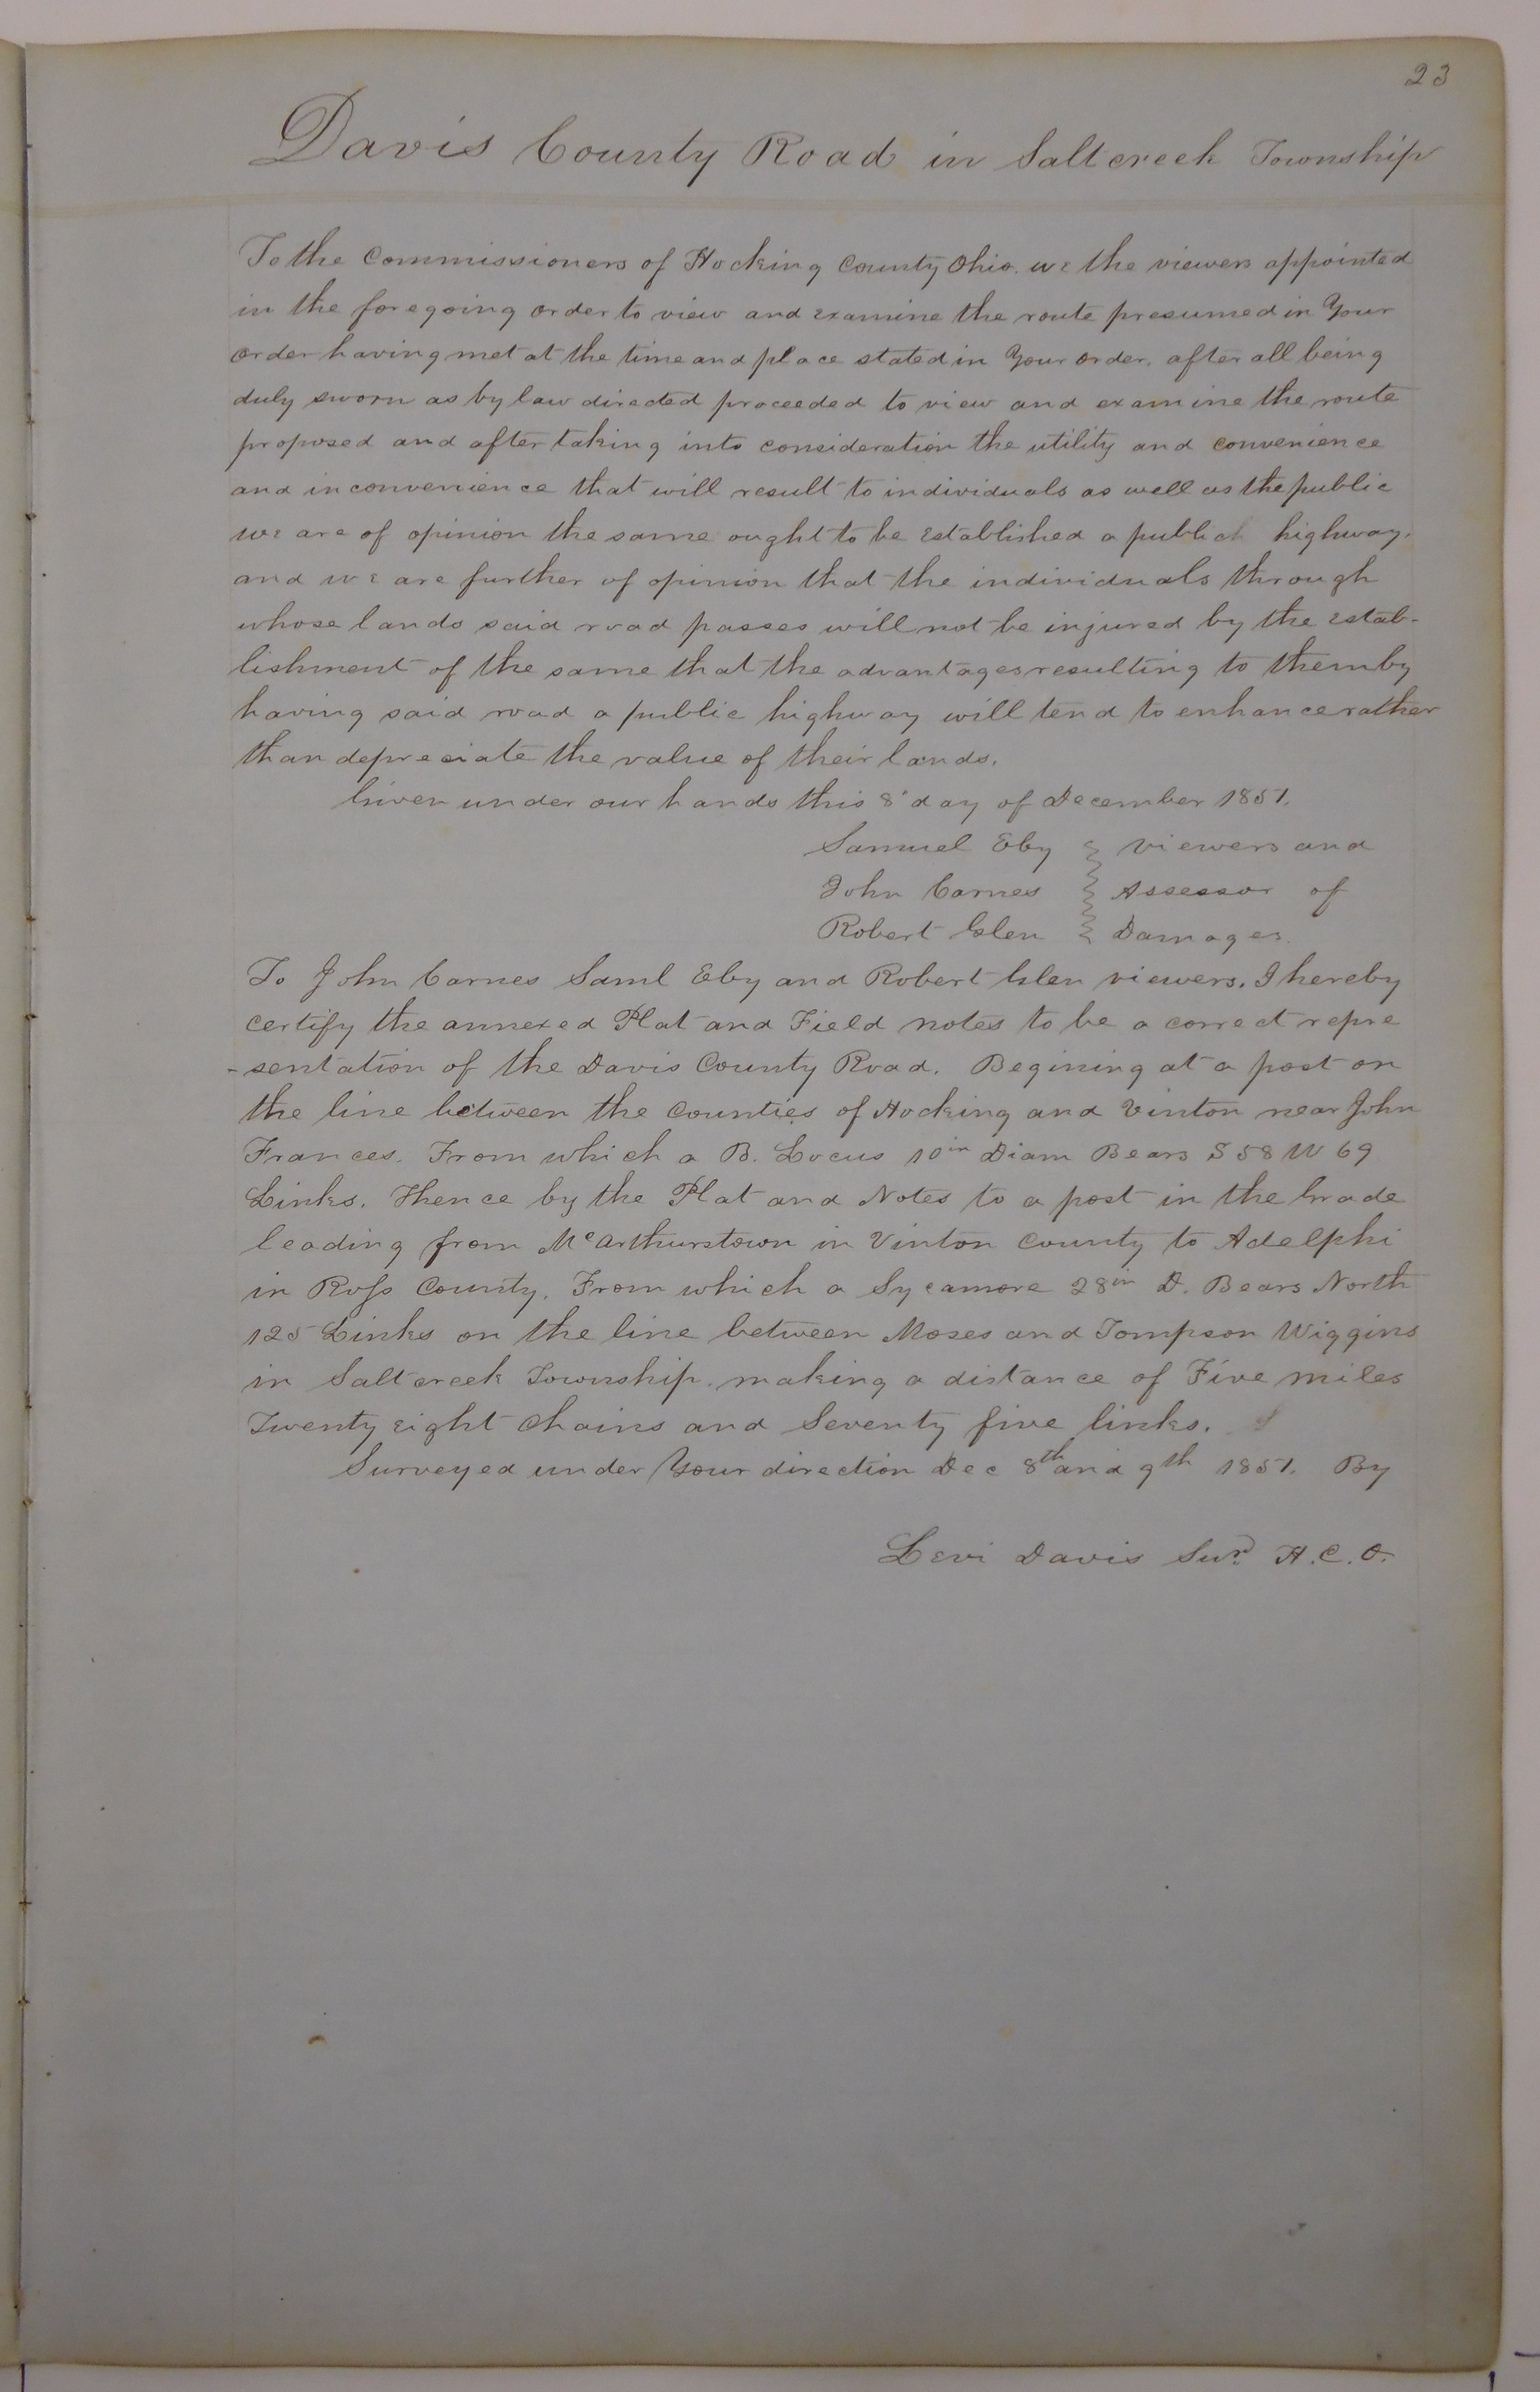 23
Davis County Road in Saltcreek Township
To the Commissioners of Hocking County Ohio. we the viewers appointed
in the foregoing order to view and examine the route presumed in Your
order having met at the time and place stated in Your order. after all being
duly sworn as by law directed proceeded to view and examine the route
proposed and after taking into consideration the utility and convenience
and inconvenience that will result to individuals as well as the public
we are of opinion the same ought to be established a public highway.
and we are further of opinion that the individuals through
whose lands said road passes will not be injured by the estab-
lishment of the same that the advantages resulting to them by
having said road a public highway will tend to enhance rather
than depreciate the value of their lands.
Given under our hands this 8 day of December 1851.
Samuel Eby } viewers and
John Carnes } Assessor of
Robert Glen } Damages.
To John Carnes Saml Eby and Robert Glen viewers. I hereby
certify the annexed Plat and Field notes to be a correct repre
-sentation of the Davis County Road. Begining at a post on
the line between the Counties of Hocking and Vinton near John
Frances. From which a B. Locus 10in Diam Bears S 58 W 69
Links. Thence by the Plat and Notes to a post in the Grade
leading from McArthurstown in Vinton County to Adelphi
in Ross County. From which a Sycamore 28in D. Bears North
125 Links on the line between Moses and Tompson Wiggins
in Saltcreek Township. making a distance of Five miles
Twenty eight Chains and Seventy five links.
Surveyed under Your direction Dec 8th and 9th 1851. By
Levi Davis Sur. H.C.O.